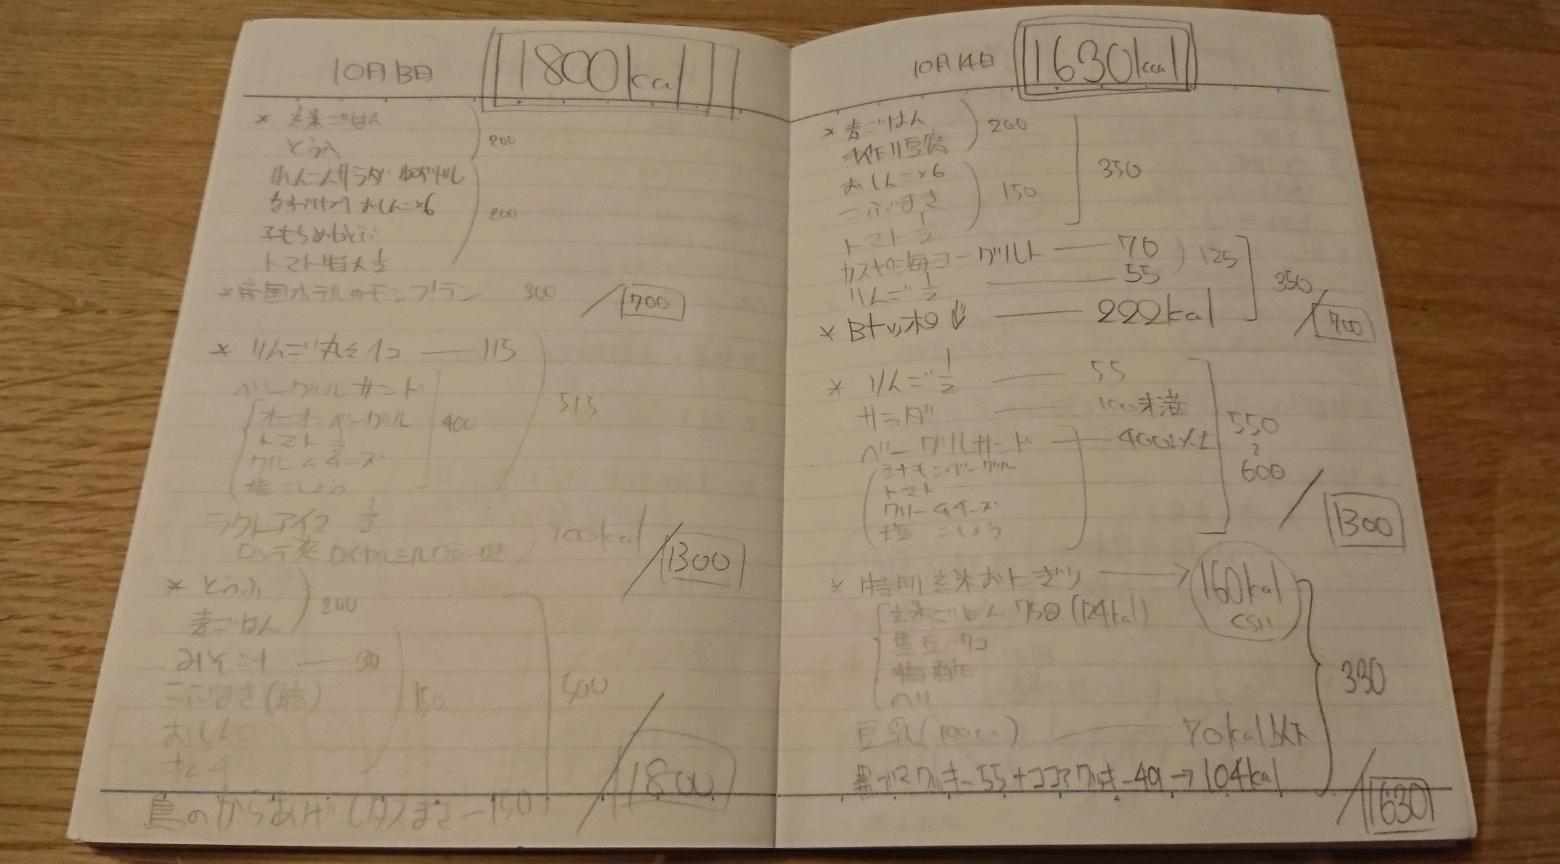 10月13日 1800kcal
* 玄米ごはん
とうふ 200
れんこんサラダ
おしんこ×6 200
トマト特大1/2
*帝国ホテルのモンブラン 300 /700
* りんご丸々1コ 115
ベーグルサンド
トマト1/2 400 515
クリームチーズ
塩こしょう
ラクトアイス 1/2
100kcal /1300
* とうふ
麦ごはん 200
みそ汁 30
こぶまき 150 500
おしんこ
/1800
鳥のからあげ 150
10月14日 1630kcal
*麦ごはん 200
手作り豆腐
おしんこ×6 350
こぶまき 150
トマト1/2
カスピ海ヨーグルト 70 125
りんご1/2 55 350
* 222kcal /700
* りんご1/2 55
サラダ 100未満
ベーグルサンド 400以上 550
シナモンベーグル 〜
トマト 600
クリームチーズ
塩こしょう /1300
* 特製玄米おにぎり → 160kcal
玄米ごはん 75g (124kcal) くらい
梅酢 330
のり
豆乳(100cc) 70kcal以下
クッキー55+ココアクッキー49→104kcal
/1630